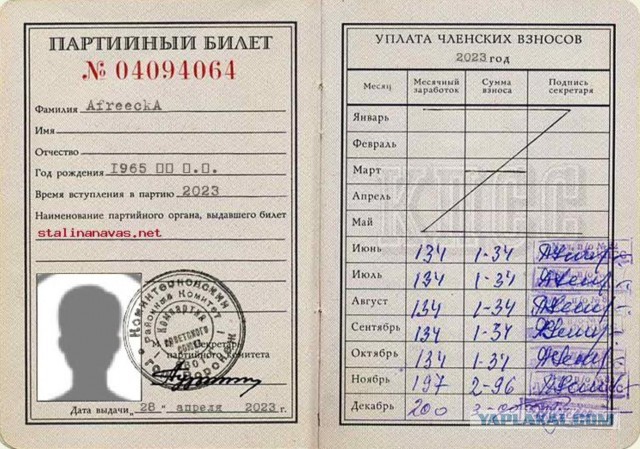 ПАРТИЙНЫЙ БИЛЕТ
№ 04094064
Фамилия AfreeckA
Имя
Отчество
Год рождения 1965 □□ □.□.
Время вступления в партию 2023
Наименование партийного органа, выдавшего билет
stalinanavas.net
М. Секретарь
партийного комитета
Дата выдачи „28" апреля 2023 г.
УПЛАТА ЧЛЕНСКИХ ВЗНОСОВ
2023 год
Месяц Месячный заработок Сумма взноса Подпись секретаря
Январь
Февраль
Март
Апрель
Май
КПСС
Июнь 134 1-34
Июль 134 1-34
Август 134 1-34
Сентябрь 134 1-34
Октябрь 134 1-34
Ноябрь 197 2-96
Декабрь 200
YAPLAKAL.COM